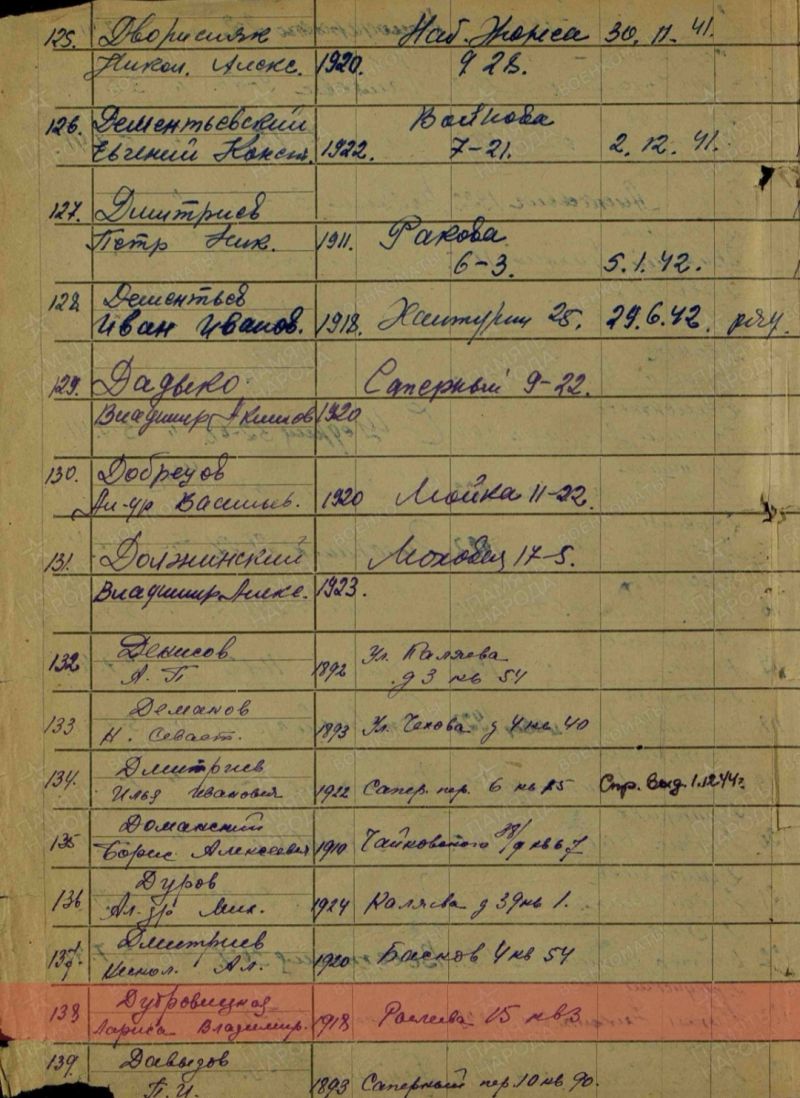 125. Дворисняк Наб. Жореса 30. 11. 41.
Никол. Алекс. 1920. 9 28.
126. Дементьевский Войнова
Евгений Конст. 1922. 7-21. 2. 12. 41.
127. Дмитриев
Петр Ник. 1911. Ракова
6-3. 5. 1. 42.
128. Дементьев
Иван Иванов. 1918. Халтурин 25. 29. 6. 42.
129. Дадыко Саперный 9-22.
Владимир Акимов 1920
130. Добрецов
Ал-др Васильев. 1920 Мойка 11-22.
131. Должинский Моховая 17-5.
Владимир Алекс. 1923.
132 Денисов Ул. Каляева
А. П 1892 д 3 кв 54
133 Деманов
Н. Севаст. 1893 Ул. Чехова д 4 кв 40
134. Дмитриев
Илья Иванович 1922 Сапер. пер. 6 кв 15 Спр. выд. 1.12 44г.
135 Доманский
Борис Алексеевич 1910 Чайковского кв 67
136 Дуров
Ал-др Мих. 1924 Каляева д 39 кв 1.
137. Дмитриев
Никол. Ал. 1920 Басков 4 кв 54
138 Дубровицкая
Лариса Владимир. 1918 15 кв 3
139. Давыдов
П. И. 1893 Саперный пер. 10 кв. 90.